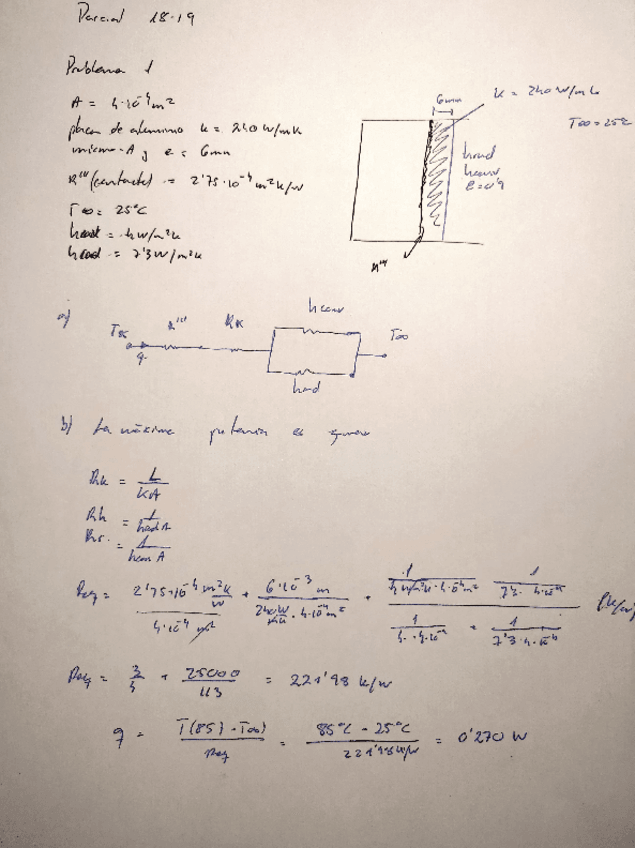 Parcial 18-19
Problema 1
A = 4·10⁻⁴m²
placa de aluminio k = 240 W/mk
misma A y e = 6mm
R'''(contacto) = 2'75·10⁻⁴ m²k/W
T∞ = 25°C
hconv = 4W/m²k
hrad = 7'3 W/m²k
6mm
k = 240 W/mk
T∞ = 25°C
hrad
hconv
e = 0'9
R'''
a)
R''' Rk hconv T∞
q
hrad
b) La máxima potencia es q max
Rk = L/kA
Rh = 1/hrad A
Rr = 1/hconv A
Req = 2'75·10⁻⁴ m²k/W / 4·10⁻⁴ m² + 6·10⁻³ m / 240 W/mk · 4·10⁻⁴m² + 1/4W/m²k·4·10⁻⁴m² · 1/7'3·4·10⁻⁴ / 1/4·4·10⁻⁴ + 1/7'3·4·10⁻⁴ (k/W)
Req = 3/4 + 25000/113 = 221'98 k/W
q = T(85) - T∞ / Req = 85°C - 25°C / 221'98 k/W = 0'270 W